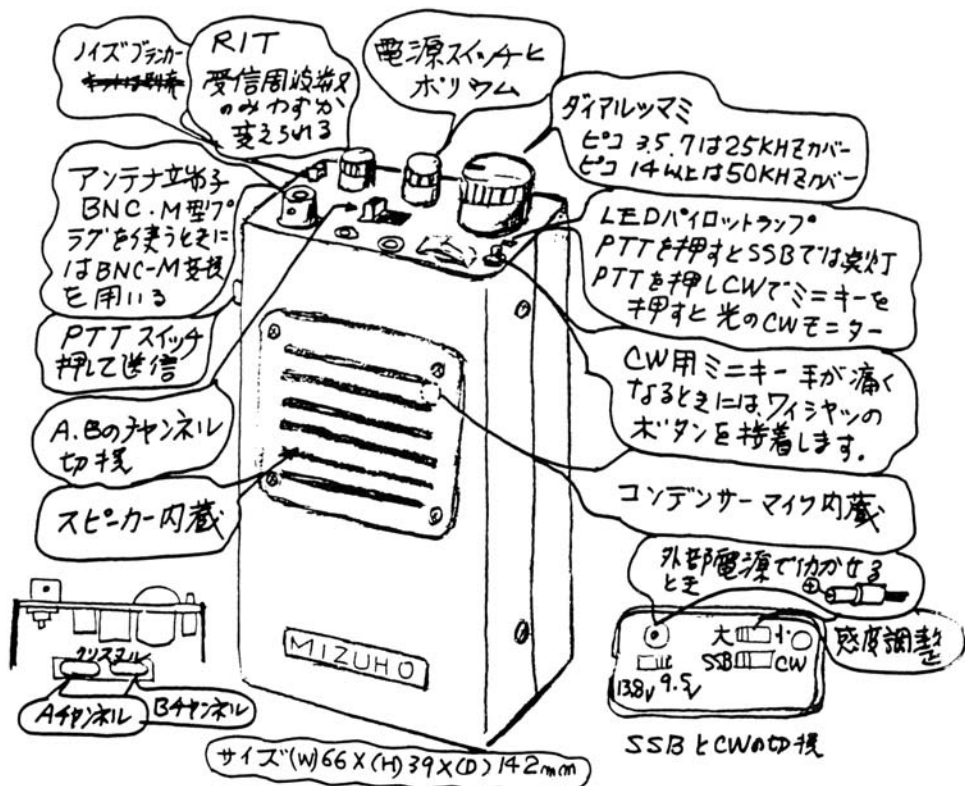 ノイズブランカー
RIT
受信周波数
のみわずか
変えられる
電源スイッチと
ボリウム
ダイアルツマミ
ピコ 3.5.7は25KHzカバー
ピコ 14以上は50KHzカバー
アンテナ端子
BNC・M型プ
ラグを使うときに
はBNC-M変換
を用いる
LEDパイロットランプ
PTTを押すとSSBでは点灯
PTTを押しCWでミニキーを
押すと光のCWモニター
PTTスイッチ
押して送信
CW用ミニキー 手が痛く
なるときには、ワイシャツの
ボタンを接着します.
A.Bのチャンネル
切換
スピーカー内蔵
コンデンサーマイク内蔵
外部電源で仂かせる
とき
⊕
感度調整
大 小
SSB CW
13.8V 9.5V
SSBとCWの切換
クリスタル
Aチャンネル
Bチャンネル
MIZUHO
サイズ(W)66×(H)39×(D)142mm